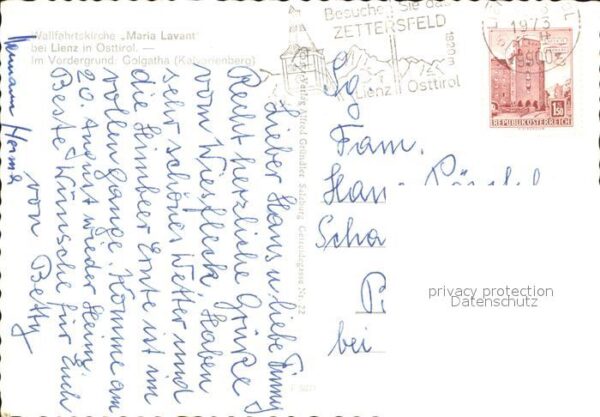 Wallfahrtskirche „Maria Lavant"
bei Lienz in Osttirol. —
Im Vordergrund: Golgatha (Kalvarienberg)
Besuchen Sie das
ZETTERSFELD
1820 m
Lienz Osttirol
1973
REPUBLIK ÖSTERREICH
1.50
Verlag Alfred Gründler Salzburg Getreidegasse Nr. 22
Lieber Hans u. liebe Finny
Recht herzliche Grüße
vom Wiesfleck, haben
sehr schönes Wetter und
die Himbeer Ernte ist im
vollen Gange. Komme am
20. August wieder Heim.
Beste Wünsche für Euch
von Betty
Hermann
Sg.
Fam.
Han
Scha
P
bei
privacy protection
Datenschutz